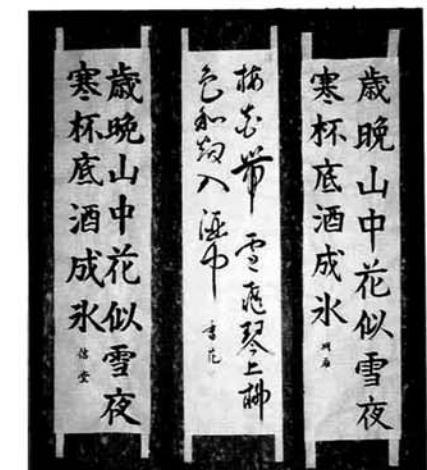 歳晩山中花似雪夜
寒杯底酒成氷
梅花帯雪飛琴上柳
色和煙入酒中
歳晩山中花似雪夜
寒杯底酒成氷 信堂